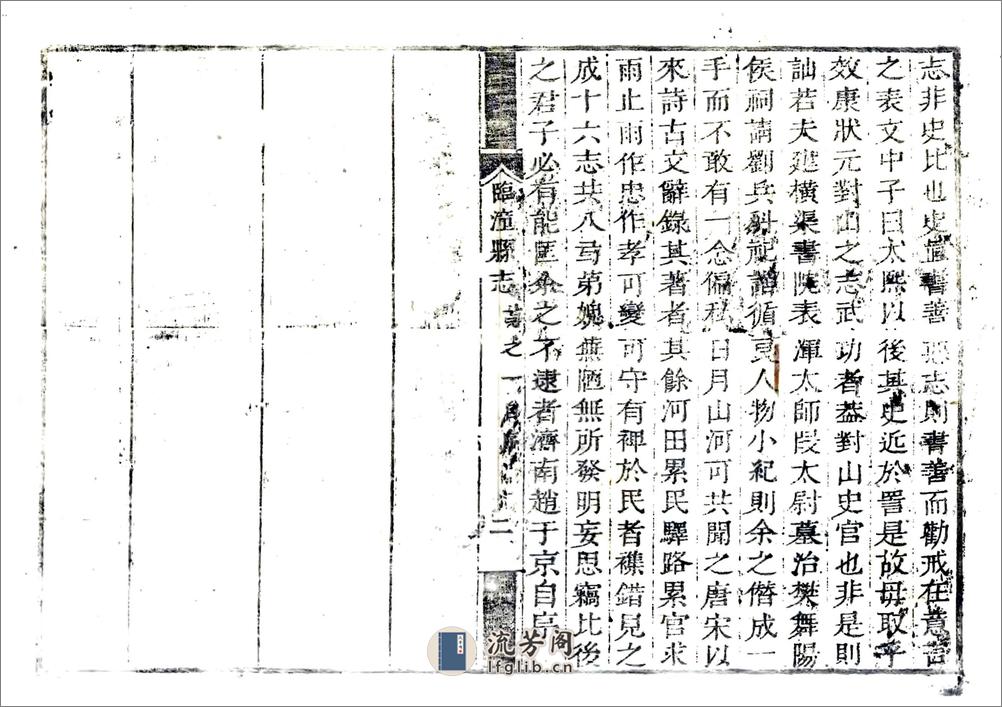 志非史比也史直書善惡志則書善而勸戒在意言
之表文中子曰太熙以後其史近於畧是故毋取乎
效康狀元對山之志武功者葢對山史官也非是則
訕若夫建橫渠書院表渾太師段太尉墓治樊舞陽
侯祠請劉兵科祀諸循吏人物小紀則余之僭成一
手而不敢有一念偏私日月山河可共聞之唐宋以
來詩古文辭錄其著者其餘河田累民驛路累官求
雨止雨作忠作孝可變可守有裨於民者襍錯見之
成十六志共八弓第媿無陋無所發明妄思竊比後
之君子必有能匡余之不逮者濟南趙于京自序
臨潼縣志
之一
二
流芳阁
lfglib.cn